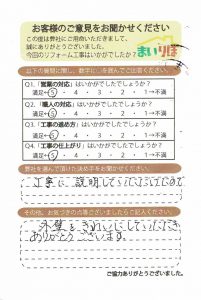 お客様のご意見をお聞かせください
この度は弊社にご用命いただきまして、
誠にありがとうございました。
今回のリフォーム工事はいかがでしたか？
まいりほ
以下の質問に関し、数字に○を囲んでご回答ください。
Q1.「営業の対応」はいかがでしたでしょうか？
満足←5・4・3・2・1→不満
Q2.「職人の対応」はいかがでしたでしょうか？
満足←5・4・3・2・1→不満
Q3.「工事の進め方」はいかがでしたでしょうか？
満足←5・4・3・2・1→不満
Q4.「工事の仕上がり」はいかがでしたでしょうか？
満足←5・4・3・2・1→不満
弊社を選んで頂けた決め手をお聞かせください
説明して
その他、お気づきの点等ございましたらご記入ください。
外壁をきれいにしていただき
ありがとうございます。
ご協力ありがとうございました。